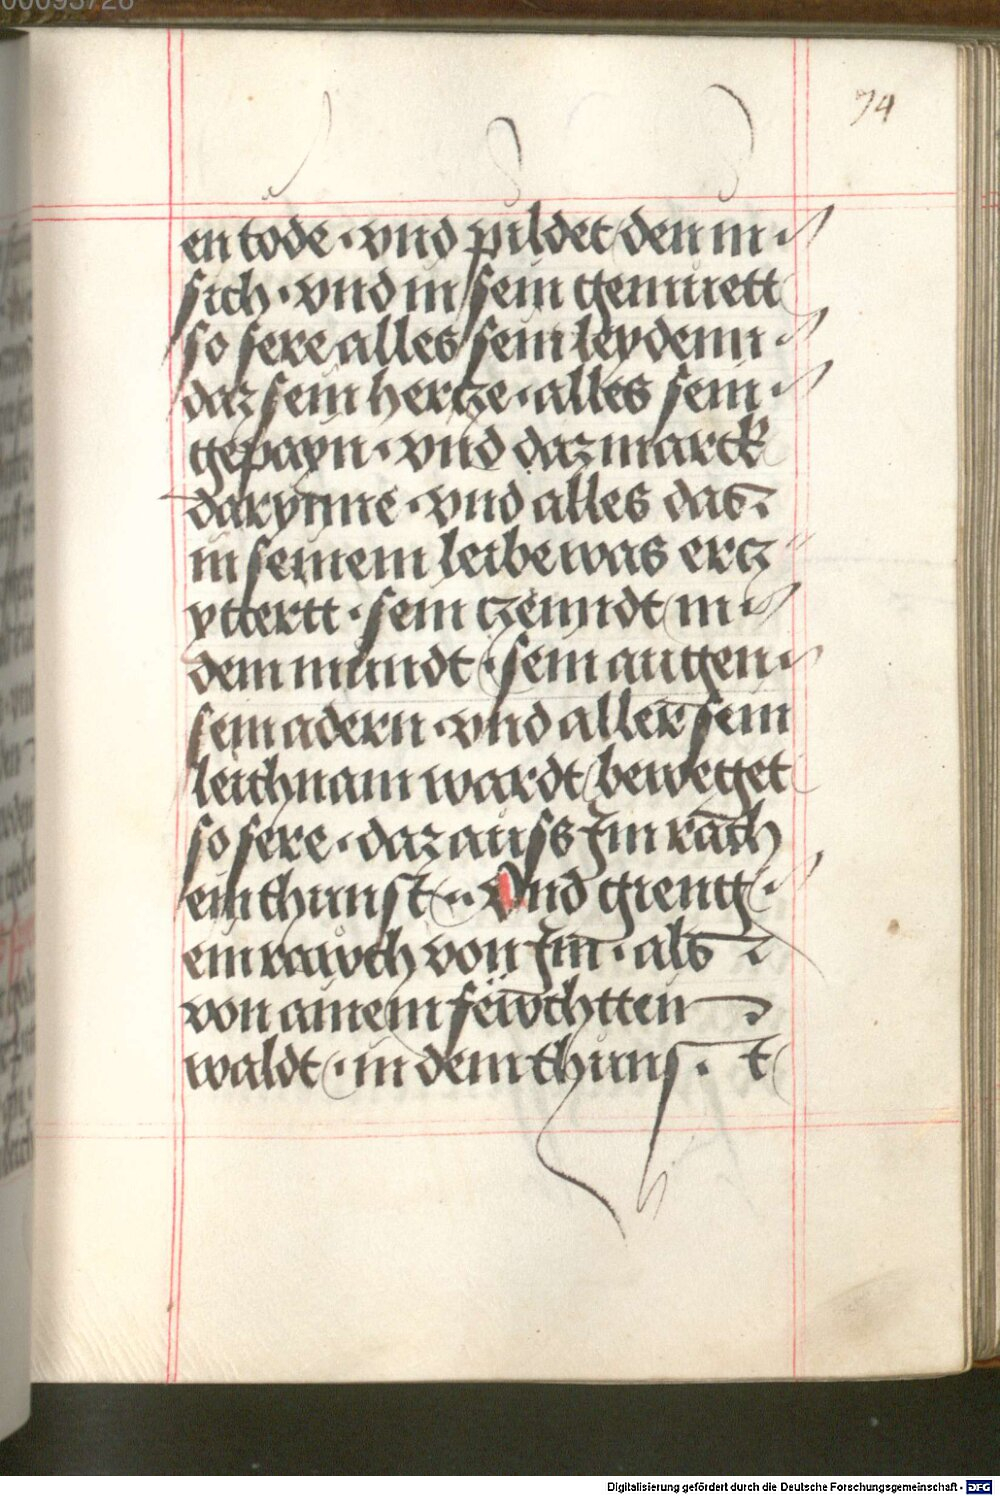 00093728
74
en tode · vnd pildet den in ·
sich · vnd in sein gemuett
so sere alles sein leydenn ·
daz sein hertze · alles sein ·
gepayn · vnd daz marck
darynne · vnd alles das
in seinem leibe was ertz
yttertt · sein tzenndt in ·
dem mundt · sein augen ·
sein adern · vnd aller sein
leichnam wardt beweget
so sere · daz auss Jm rach
ein thunst · Vnd gieng ·
ein rawch von Jm · als
von ainem fewchtten
waldt · in dem thuns · t
Digitalisierung gefördert durch die Deutsche Forschungsgemeinschaft - DFG